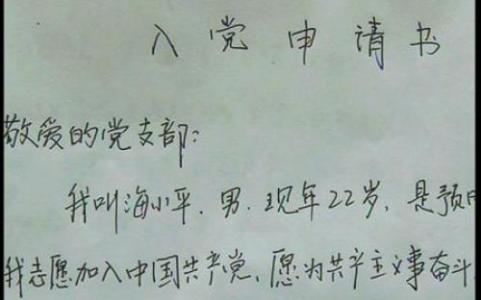 入党申请书
敬爱的党支部:
我叫海小平.男.现年22岁,是预
我志愿加入中国共产党、愿为共产主义事奋斗